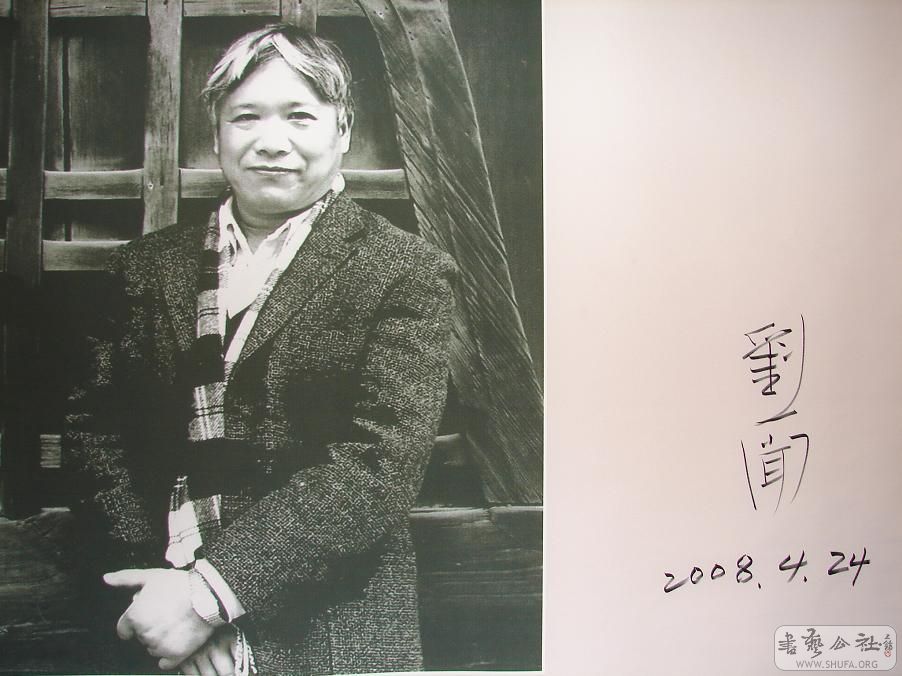 劉
一
聞
2008.4.24
書藝公社
WWW.SHUFA.ORG